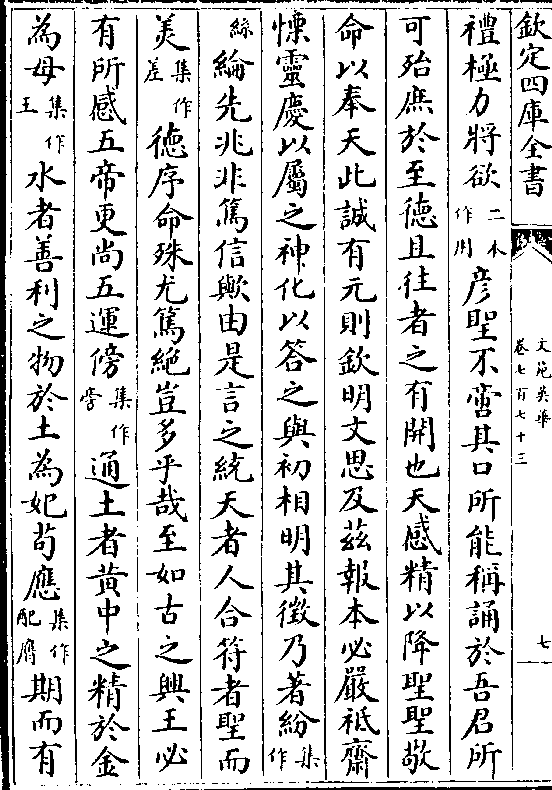 欽定四庫全書
文苑英華
卷七百七十三
七
禮極力將欲二本作用彦聖不啻其口所能稱誦於吾君所
可殆庶於至德且往者之有開也天感精以降聖聖敬
命以奉天此誠有元則欽明文思及兹報本必嚴祗齋
慄靈慶以屬之神化以答之與初相明其徴乃著紛集作
絲綸先兆非篤信歟由是言之統天者人合符者聖而
美集作差德序命殊尤篤絶豈多乎哉至如古之興王必
有所感五帝更尚五運傍集作旁通土者黄中之精於金
為母集作王水者善利之物於土為妃苟應集作配膺期而有